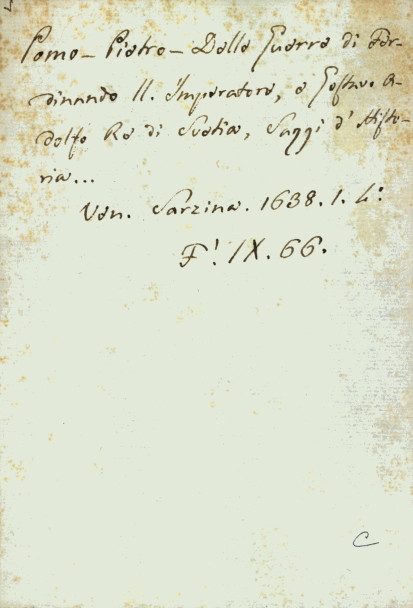 Pomo - Pietro - Delle Guerre di Fer-
dinando II. Imperatore, e Gostavo A-
dolfo Re di Svetia, Saggi d' Histo-
ria...
Ven. Sarzina. 1638. 1. 4:
F! IX. 66.
C